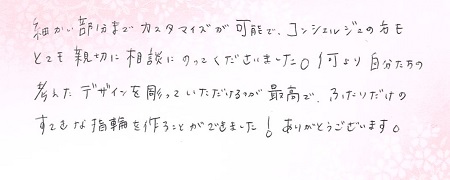 細かい部分までカスタマイズが可能で、コンシェルジュの方も
とても親切に相談にのってくださいました。何より自分たちの
考えたデザインを彫っていただけるのが最高で、ふたりだけの
すてきな指輪を作ることができました！ありがとうございます。